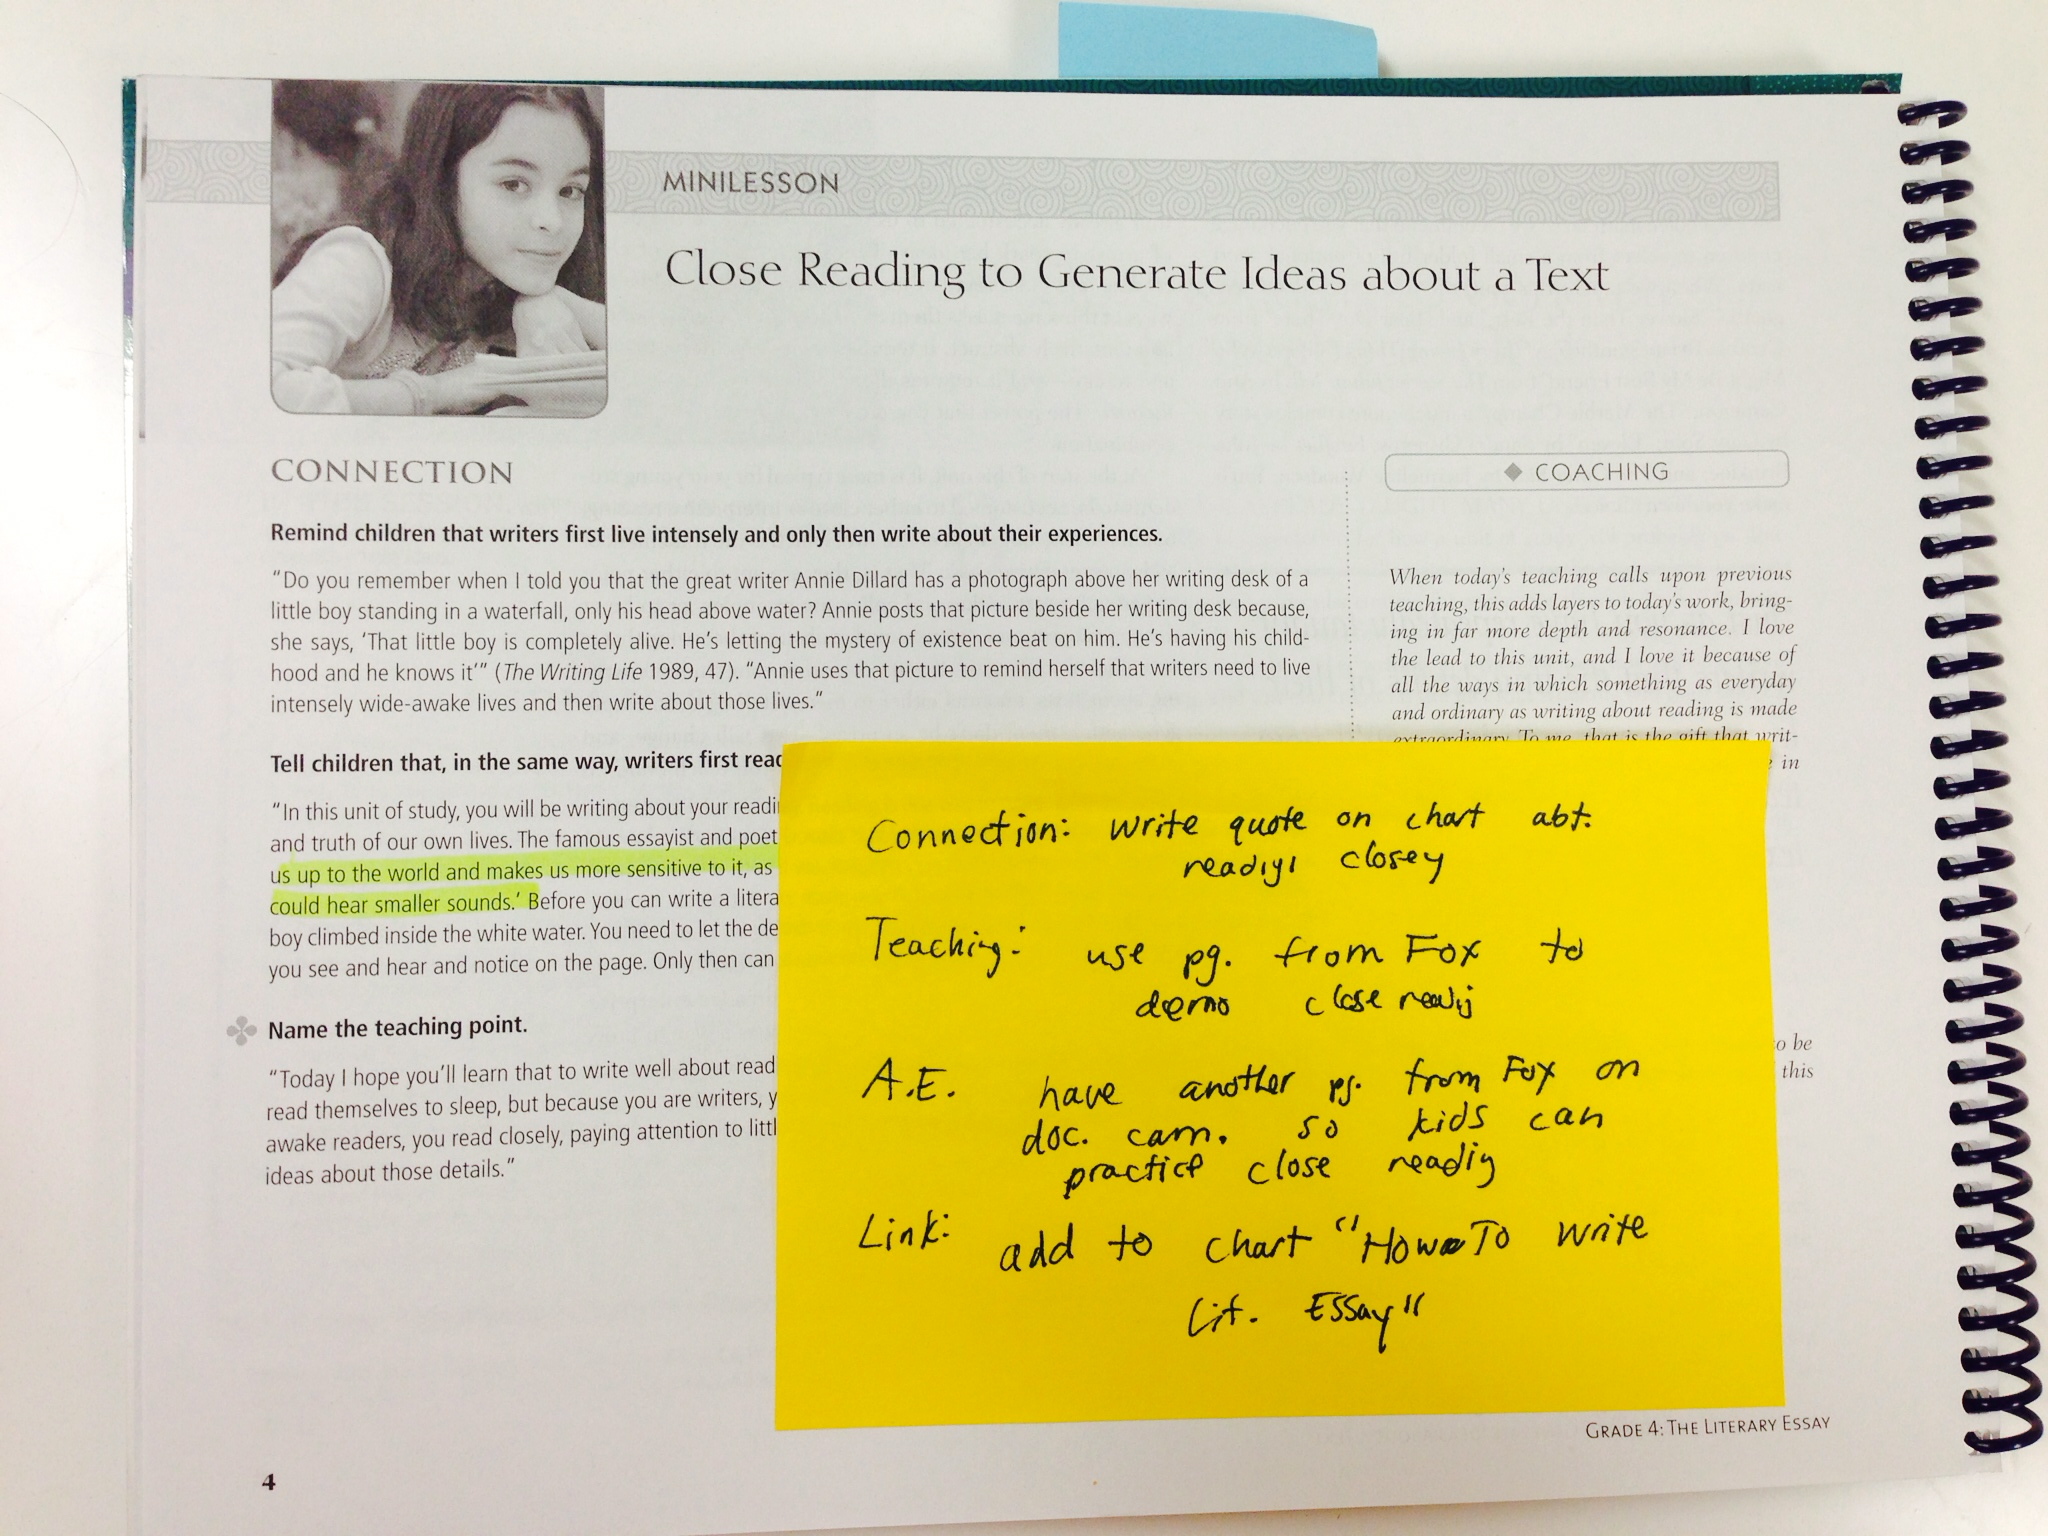 MINILESSON
Close Reading to Generate Ideas about a Text
CONNECTION
Remind children that writers first live intensely and only then write about their experiences.
“Do you remember when I told you that the great writer Annie Dillard has a photograph above her writing desk of a
little boy standing in a waterfall, only his head above water? Annie posts that picture beside her writing desk because,
she says, ‘That little boy is completely alive. He’s letting the mystery of existence beat on him. He’s having his child-
hood and he knows it’” (The Writing Life 1989, 47). “Annie uses that picture to remind herself that writers need to live
intensely wide-awake lives and then write about those lives.”
Tell children that, in the same way, writers first read
“In this unit of study, you will be writing about your readi
and truth of our own lives. The famous essayist and poet
us up to the world and makes us more sensitive to it, as
could hear smaller sounds.’ Before you can write a litera
boy climbed inside the white water. You need to let the de
you see and hear and notice on the page. Only then can
Name the teaching point.
“Today I hope you’ll learn that to write well about read
read themselves to sleep, but because you are writers, y
awake readers, you read closely, paying attention to littl
ideas about those details.”
◆ COACHING
When today’s teaching calls upon previous
teaching, this adds layers to today’s work, bring-
ing in far more depth and resonance. I love
the lead to this unit, and I love it because of
all the ways in which something as everyday
and ordinary as writing about reading is made
extraordinary. To me, that is the gift that writ-
in
to be
this
Connection: write quote on chart abt.
readig closey
Teaching: use pg. from Fox to
demo close readig
A.E. have another pg. from Fox on
doc. cam. so kids can
practice close readig
Link: add to chart "How To write
Lit. Essay"
GRADE 4: THE LITERARY ESSAY
4